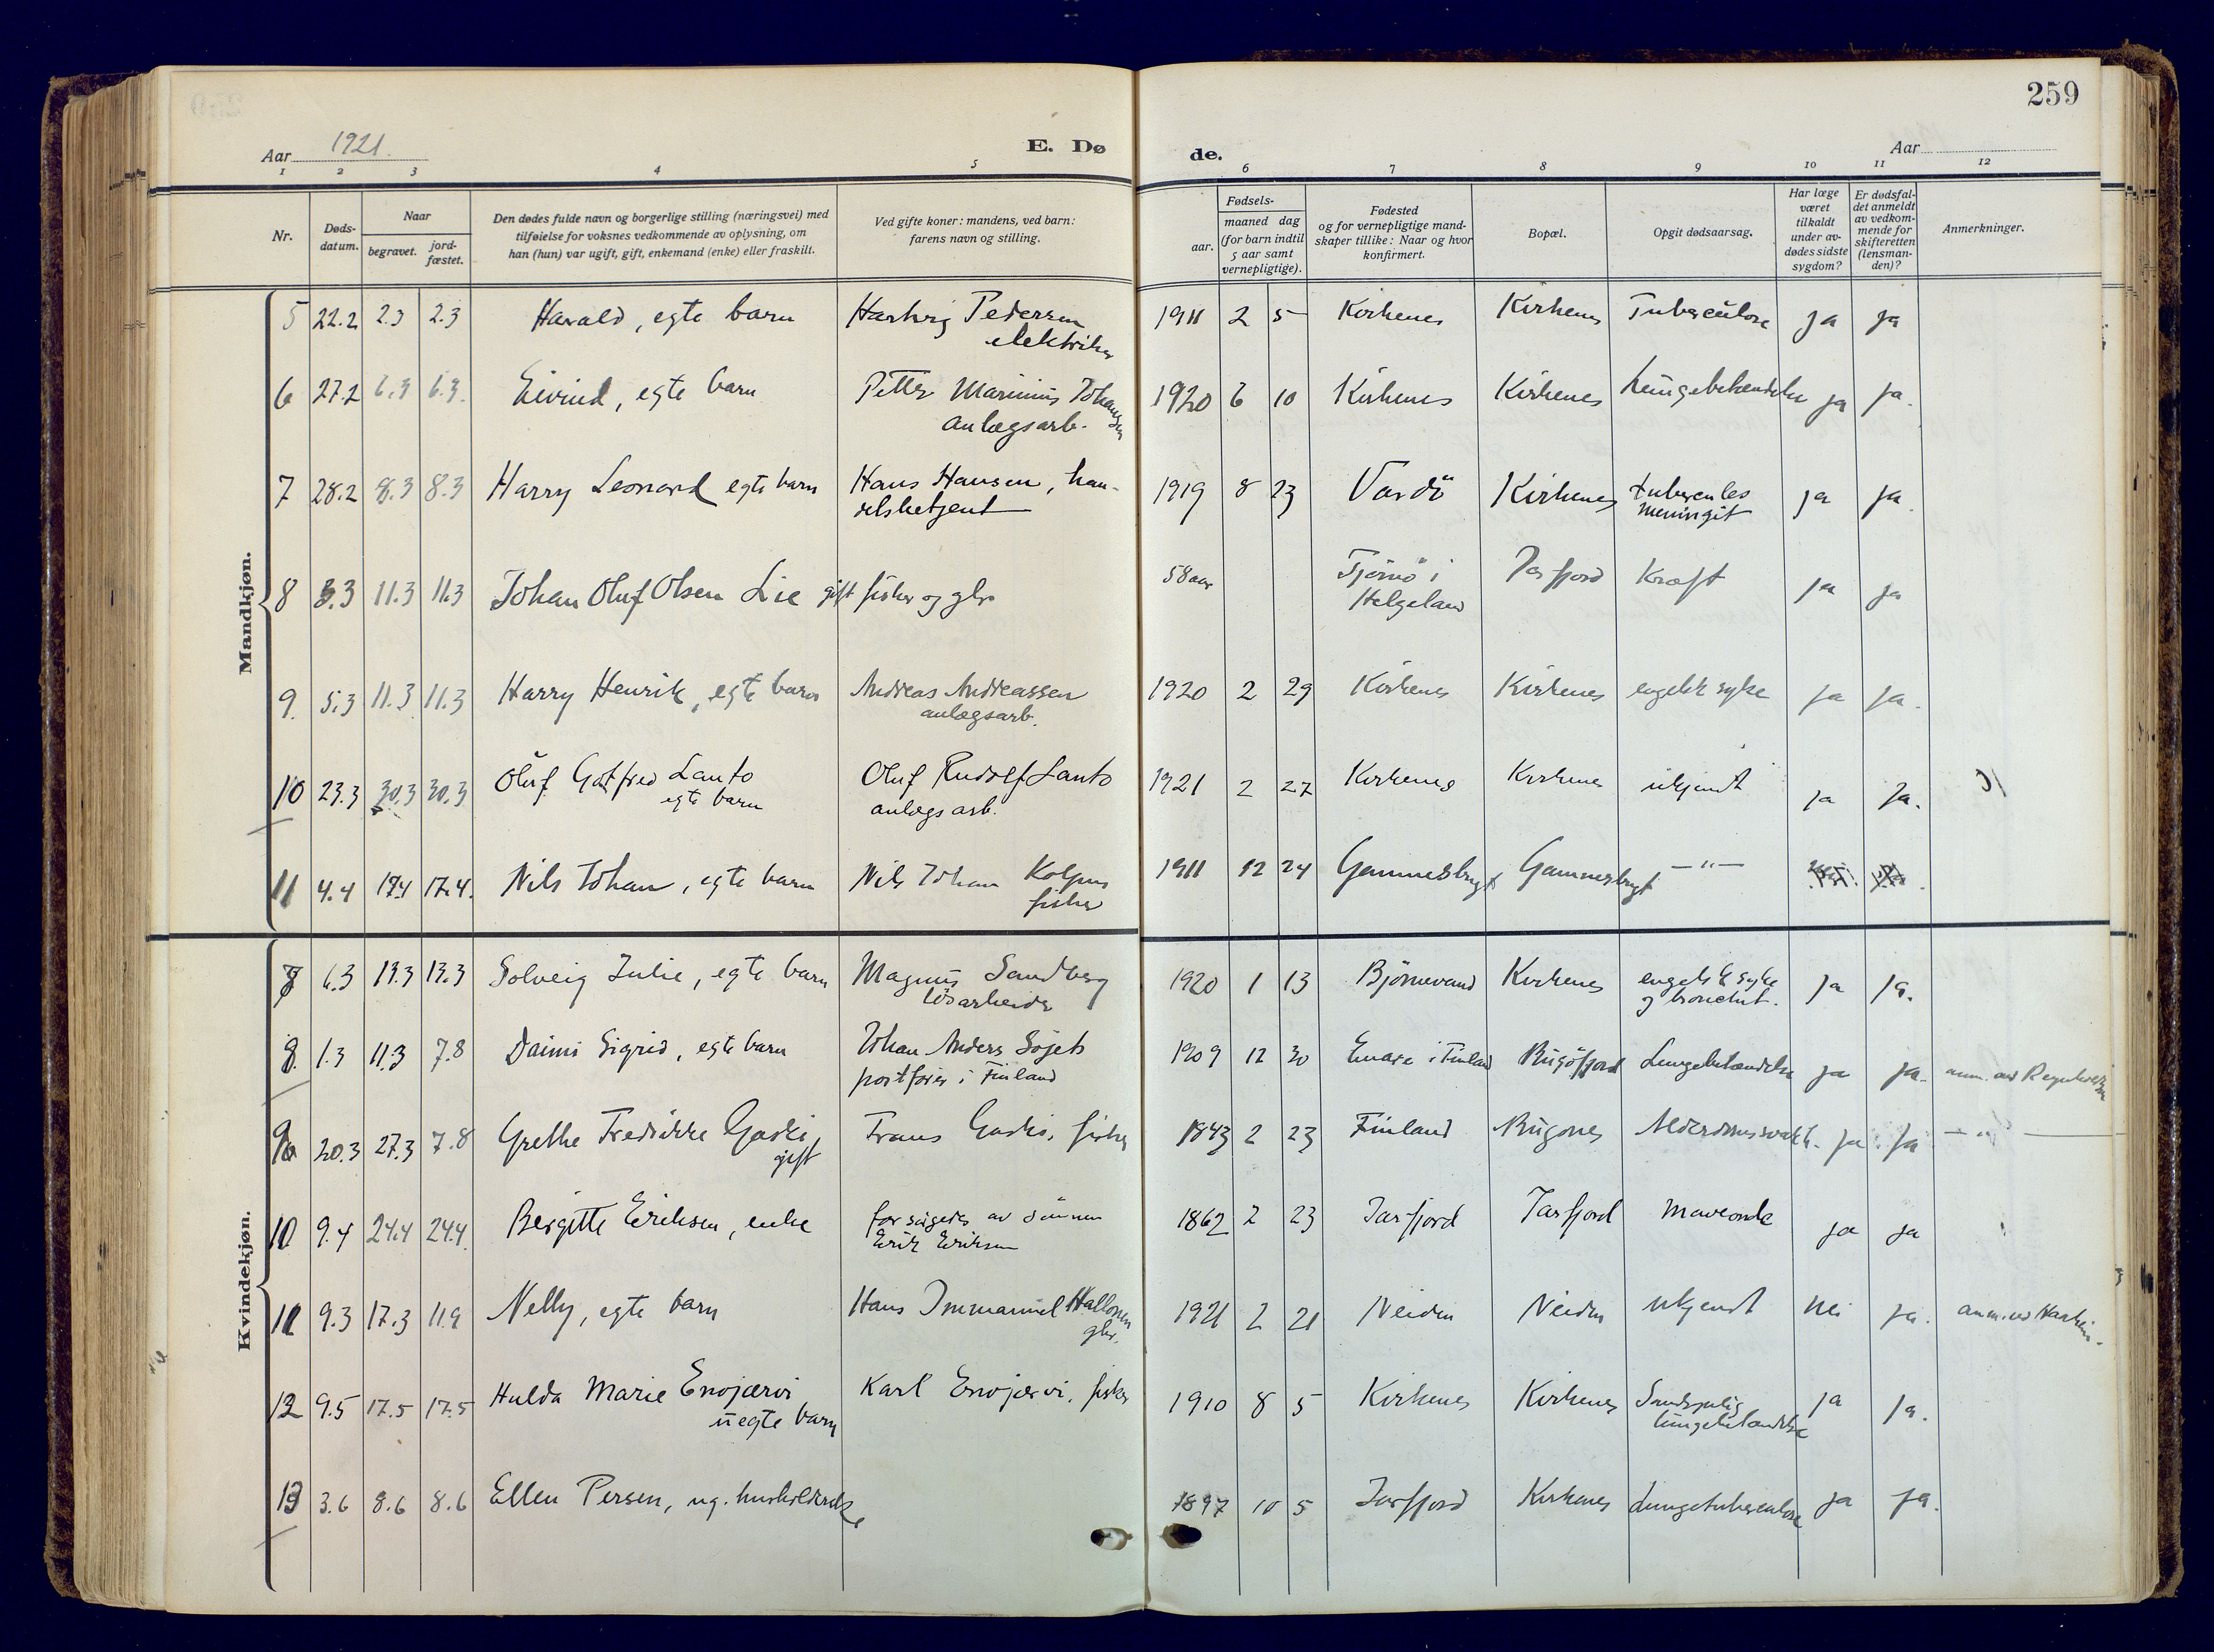 259
Aar 1921.
E. Døde.
Aar
1 2 3 4 5 6 7 8 9 10 11 12
Nr.
Døds-datum.
Naar
begravet.
jord-fæstet.
Den dødes fulde navn og borgerlige stilling (næringsvei) med
tilføielse for voksnes vedkommende av oplysning, om
han (hun) var ugift, gift, enkemand (enke) eller fraskilt.
Ved gifte koner: mandens, ved barn:
farens navn og stilling.
Fødsels-
aar.
maaned dag
(for barn indtil
5 aar samt
vernepligtige).
Fødested
og for vernepligtige mand-
skaper tillike: Naar og hvor
konfirmert.
Bopæl.
Opgit dødsaarsag.
Har læge
været
tilkaldt
under av-
dødes sidste
sygdom?
Er dødsfal-
det anmeldt
av vedkom-
mende for
skifteretten
(lensman-
den)?
Anmerkninger.
Mandkjøn.
5 22.2 2.3 2.3 Harald, egte barn Hartvig Pedersen 1911 2 5 Kirkenes Kirkenes Tuberculose ja ja
elektriker
6 27.2 6.3 6.3. Eivind, egte barn Petter Marinius Johansen 1920 6 10 Kirkenes Kirkenes Lungebetendelse ja ja.
anlægsarb.
7 28.2 8.3 8.3 Harry Leonard egte barn Hans Hansen, han- 1919 8 23 Vardö Kirkenes tuberculøs ja ja.
delsbetjent meningit
8 3.3 11.3 11.3 Johan Oluf Olsen Lie gift fisker og gbr. 58 aar Tjømø i Jarfjord Kræft ja ja
Helgeland
9. 5.3 11.3 11.3 Harry Henrik, egte barn Andreas Andreassen 1920 2 29 Kirkenes Kirkenes engelsk syke ja ja.
anlægsarb.
10 23.3 30.3 30.3 Oluf Gotfred Lanto Oluf Rudolf Lanto 1921 2 27 Kirkenes Kirkenes ukjendt ja ja.
egte barn anlægsarb.
11 4.4 17.4 17.4. Nils Johan, egte barn Nils Johan 1911 12 24 Gammesbugt Gammesbugt — " —
fisker
Kvindekjøn.
7 6.3 13.3 13.3 Solveig Julie, egte barn Magnus Sandberg 1920 1 13 Björnevand Kirkenes engelsk syke ja ja.
løsarbeider og bronchit.
8. 1.3 11.3 7.8 Daimi Sigrid, egte barn Johan Anders Sojets 1909 12 30 Enare i Finland Bugöfjord Lungebetændelse ja ja.
postfører i Finland
9 20.3 27.3 7.8 Grethe Fredrikke Gaski, Frans Gaski, fisker 1843 2 23 Finland Bugönes Alderdomssvakh. ja ja — " —
gift
10 9.4 24.4 24.4. Bergitte Eriksen, enke forsørgedes av sönnen 1862 2 23 Jarfjord Jarfjord maveonde ja ja
Erik Eriksen
11 9.3 17.3 11.9 Nelly, egte barn Hans Immanuel Hallonen 1921 2 21 Neiden Neiden ukjendt nei ja.
gbr.
12 9.5 17.5 17.5 Hulda Marie Enojærvi Karl Enojærvi, fisker 1910 8 5 Kirkenes Kirkenes Sandsynlig ja ja.
uegte barn lungebetændelse
13 3.6 8.6 8.6 Ellen Persen, ug. husholderske 1897 10 5 Jarfjord Kirkenes Lungetuberculose ja ja.